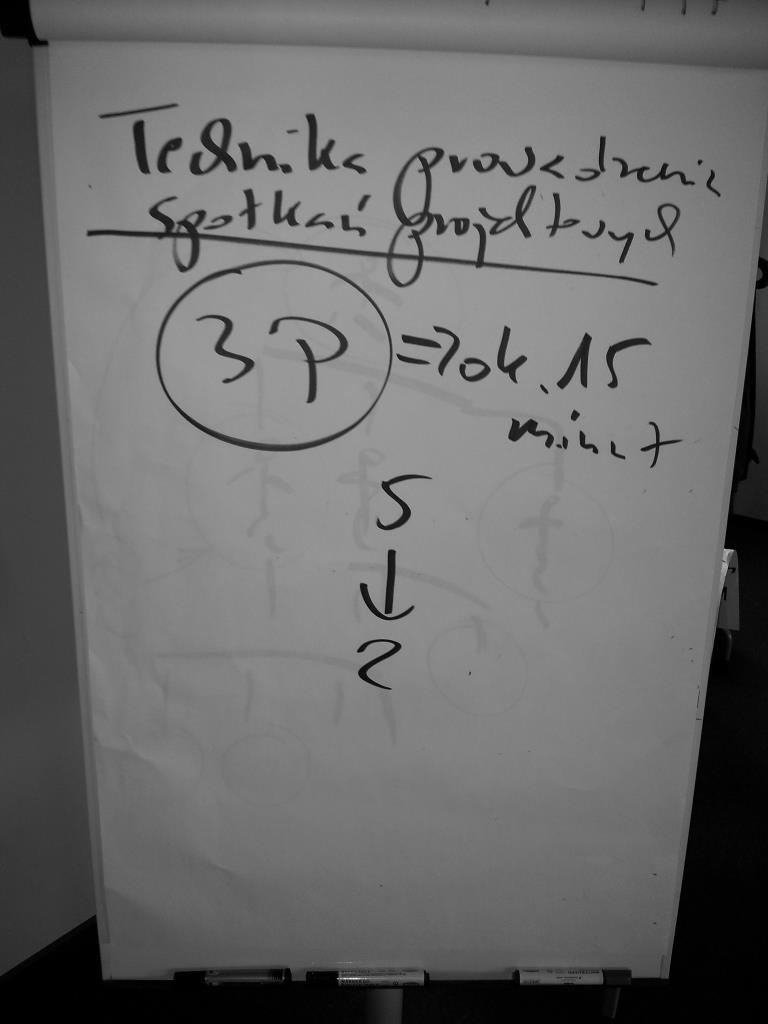 Technika prowadzenia
spotkań projektowych
3P => ok. 15
minut
5
↓
2